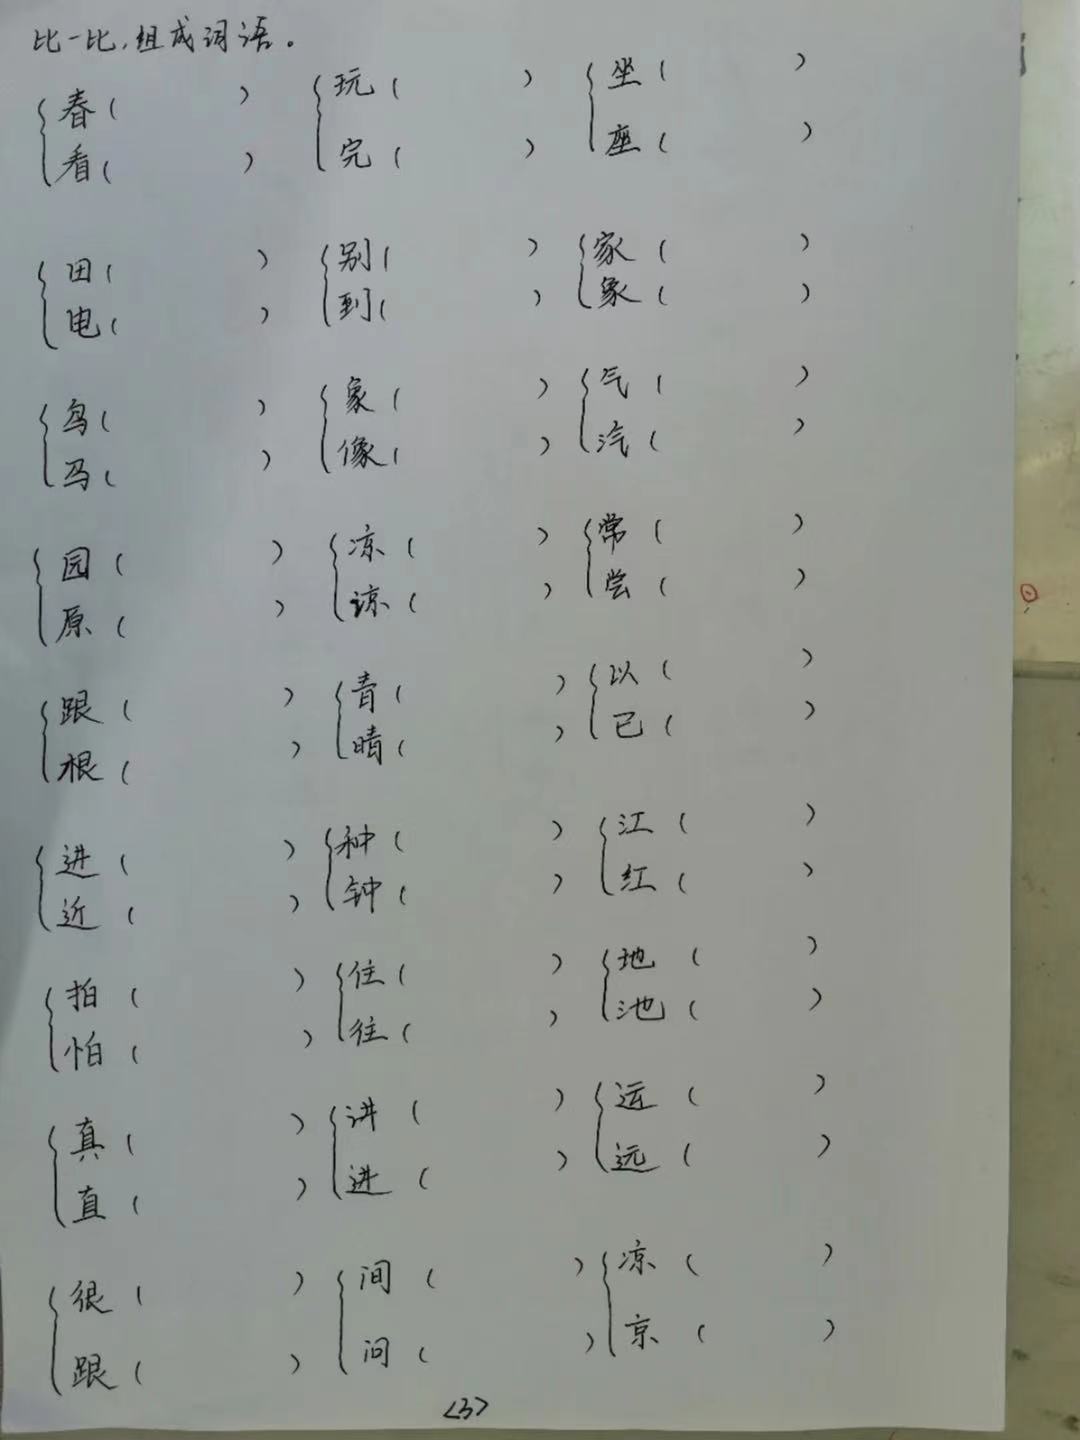 比一比,组成词语。
春( ) 玩( ) 坐( )
看( ) 完( ) 座( )
田( ) 别( ) 家( )
电( ) 到( ) 象( )
鸟( ) 象( ) 气( )
马( ) 像( ) 汽( )
园( ) 凉( ) 常( )
原( ) 谅( ) 尝( )
跟( ) 青( ) 以( )
根( ) 晴( ) 已( )
进( ) 种( ) 江( )
近( ) 钟( ) 红( )
拍( ) 住( ) 地( )
怕( ) 往( ) 池( )
真( ) 讲( ) 运( )
直( ) 进( ) 远( )
很( ) 间( ) 凉( )
跟( ) 问( ) 京( )
<3>